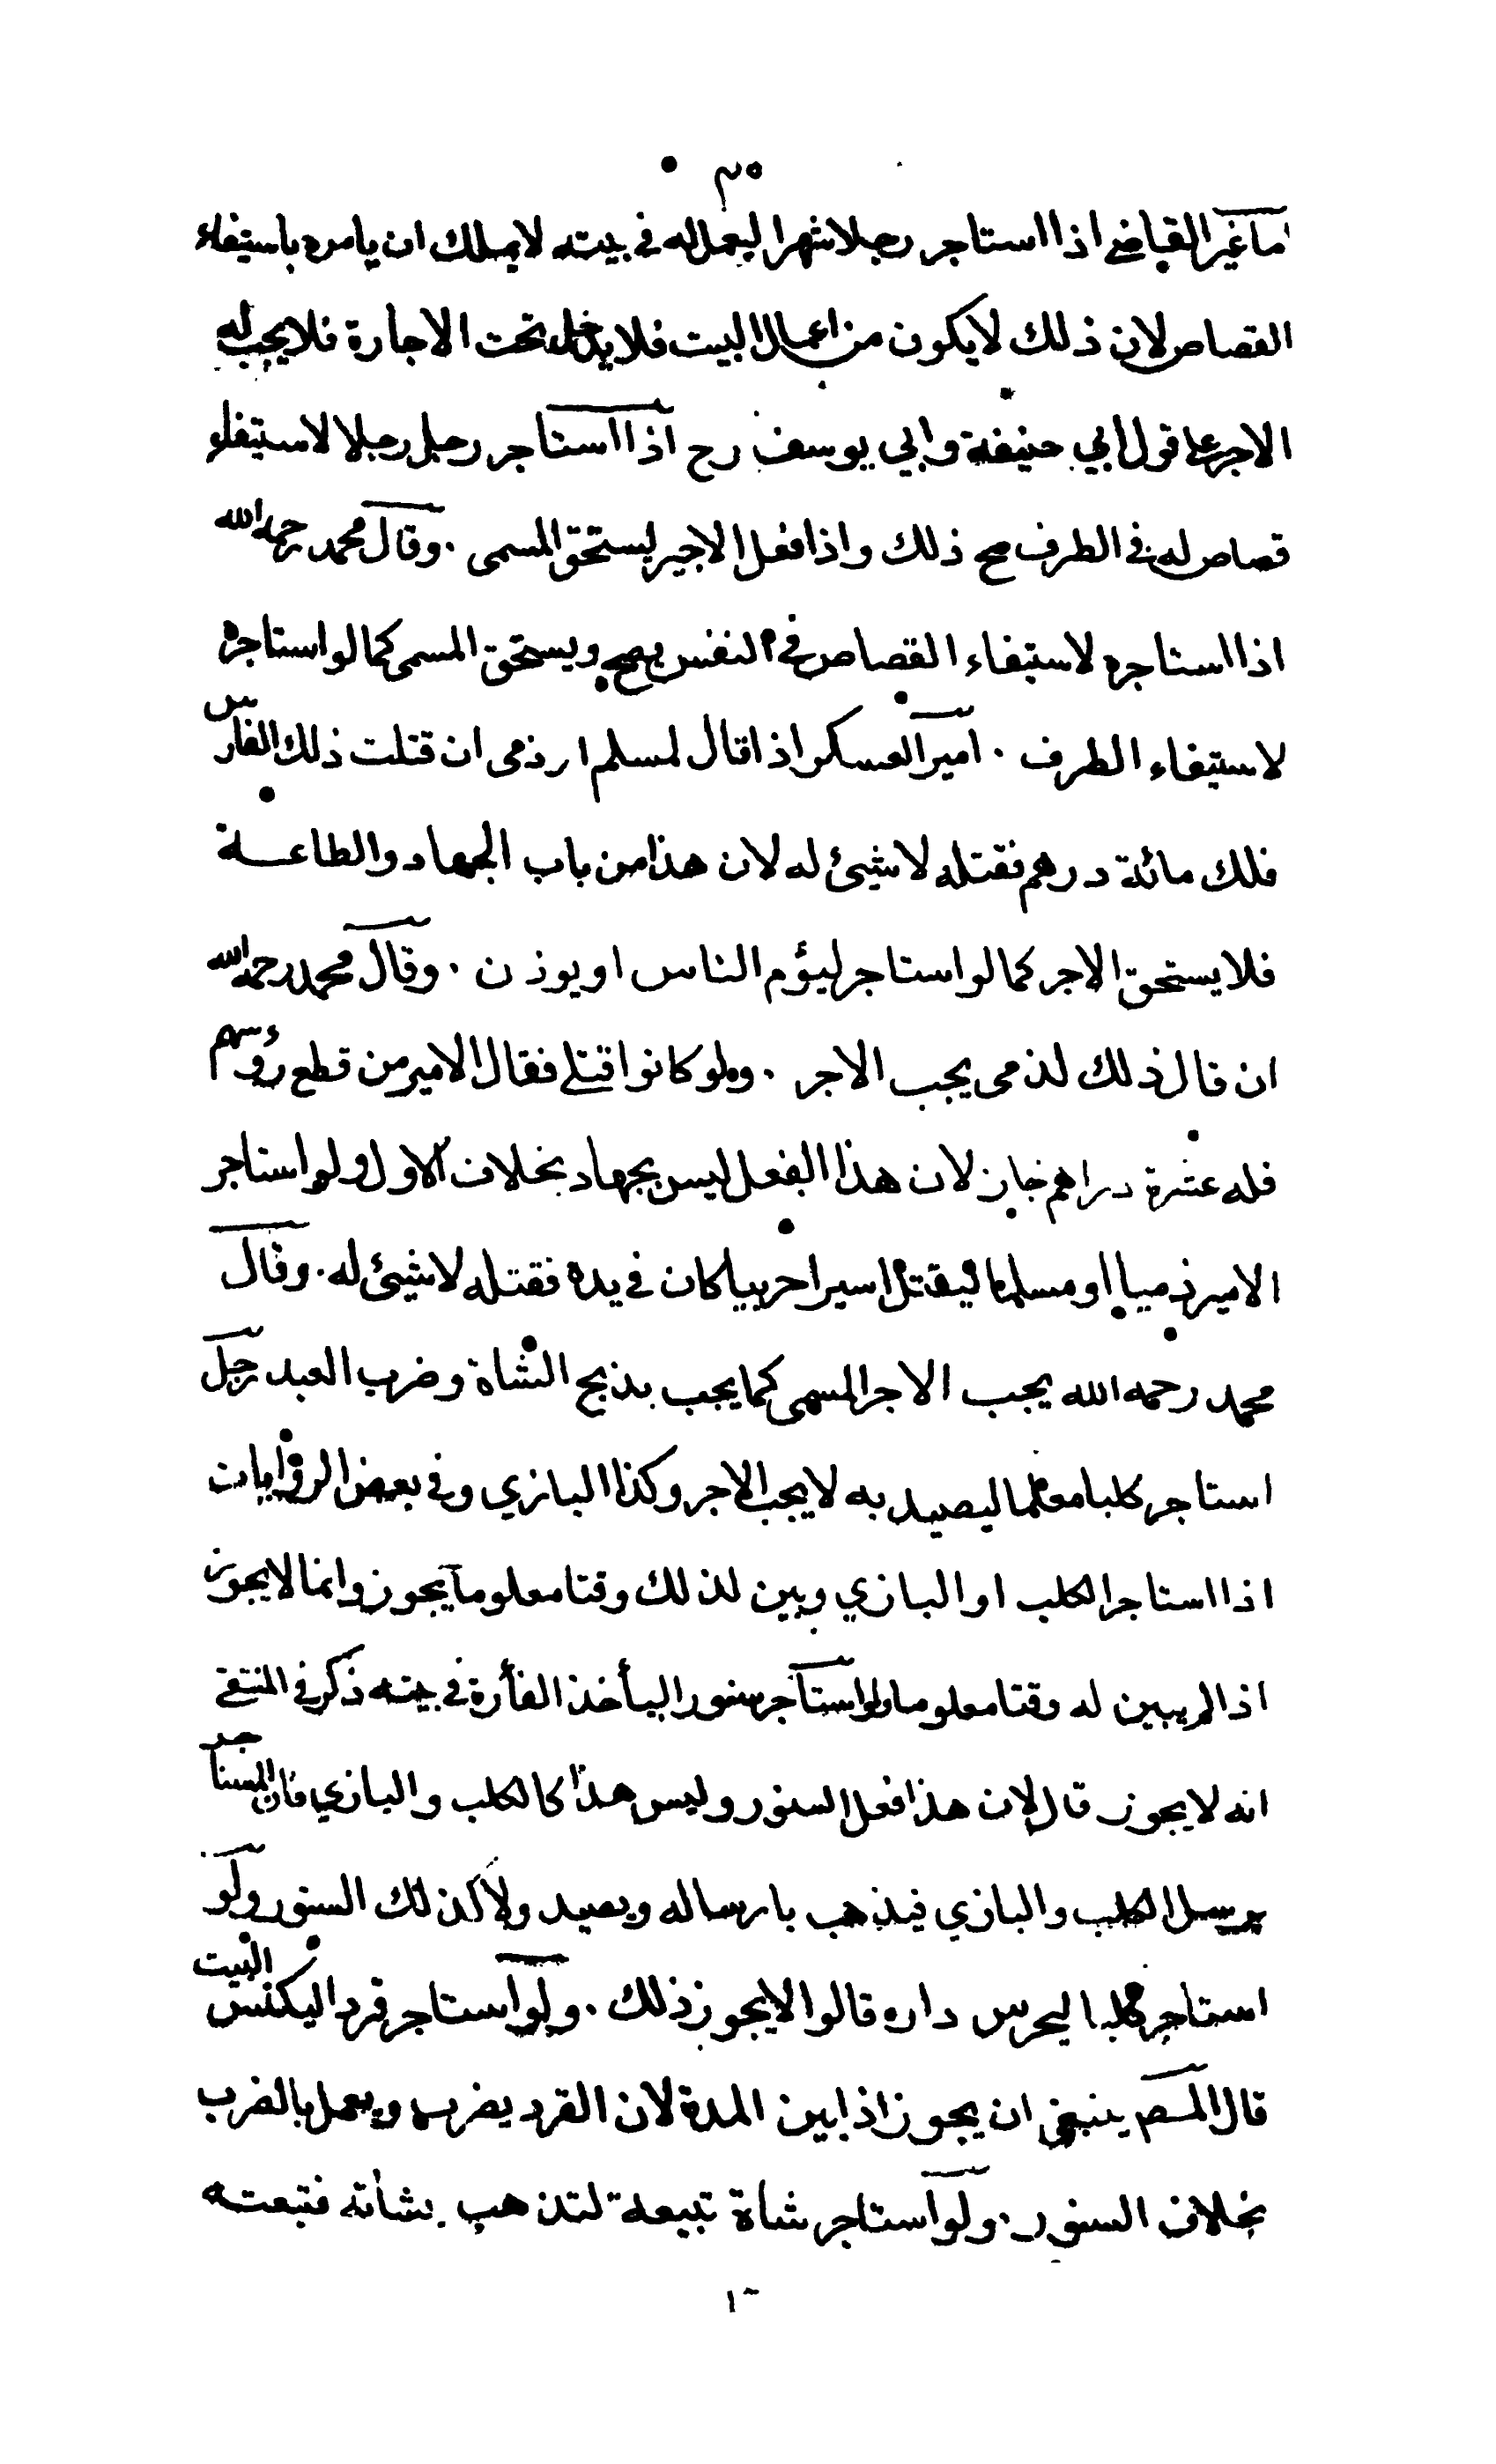 ٣٥
اما غير القاضي اذا استاجر رجلا شهرا ليعمل له في بيته لا يملك ان يامره باستيفاء
القصاص لان ذلك لا يكون من اعمال البيت فلا يدخل تحت الاجارة فلا يجب له
الاجر على قول ابي حنيفة وابي يوسف رح اذا استاجر رجل رجلا لاستيفاء
قصاص له في الطرف صح ذلك واذا فعل الاجير يستحق المسمى . وقال محمد رحمه الله
اذا استاجره لاستيفاء القصاص في النفس يصح ويستحق المسمى كما لو استاجره
لاستيفاء الطرف . امير العسكر اذا قال لمسلم او ذمي ان قتلت ذلك الفارس
فلك مائة درهم فقتله لا شيئ له لان هذا من باب الجهاد والطاعة
فلا يستحق الاجر كما لو استاجر ليؤم الناس او يوذن . وقال محمد رحمه الله
ان قال ذلك لذمي يجب الاجر . ولو كانوا قتلى فقال الامير من قطع رؤسهم
فله عشرة دراهم جاز لان هذا الفعل ليس بجهاد بخلاف الاول ولو استاجر
الامير ذميا او مسلما ليقتل اسيرا حربيا كان في يده فقتله لا شيئ له . وقال
محمد رحمه الله يجب الاجر المسمى كما يجب بذبح الشاة وضرب العبد رجل
استاجر كلبا معلما ليصيد به لا يجب الاجر وكذا البازي وفي بعض الروايات
اذا استاجر الكلب او البازي وبين لذلك وقتا معلوما يجوز وانما لا يجوز
اذا لم يبين له وقتا معلوما ولو استاجر سنورا ليأخذ الفأرة في بيته ذكر في المنتقى
انه لا يجوز قال لان هذا فعل السنور وليس هذا كالكلب والبازي فان المستاجر
يرسل الكلب والبازي فيذهب بارساله ويصيد ولا كذلك السنور ولو
استاجر كلبا ليحرس داره قالوا لا يجوز ذلك . ولو استاجر قردا ليكنس البيت
قال المصـ ينبغي ان يجوز اذا بين المدة لان القرد يضرب ويعمل بالضرب
بخلاف السنور . ولو استاجر شاة تبيعة لتذهب بشاته فتبعته